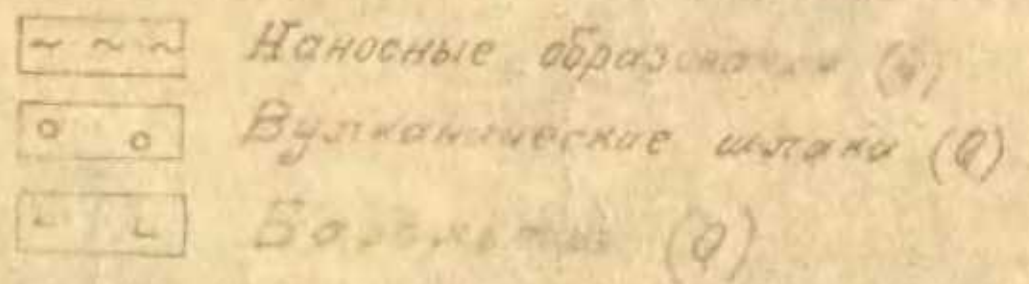 Наносные образования (Q)
Вулканические шлаки (Q)
Базальты (Q)